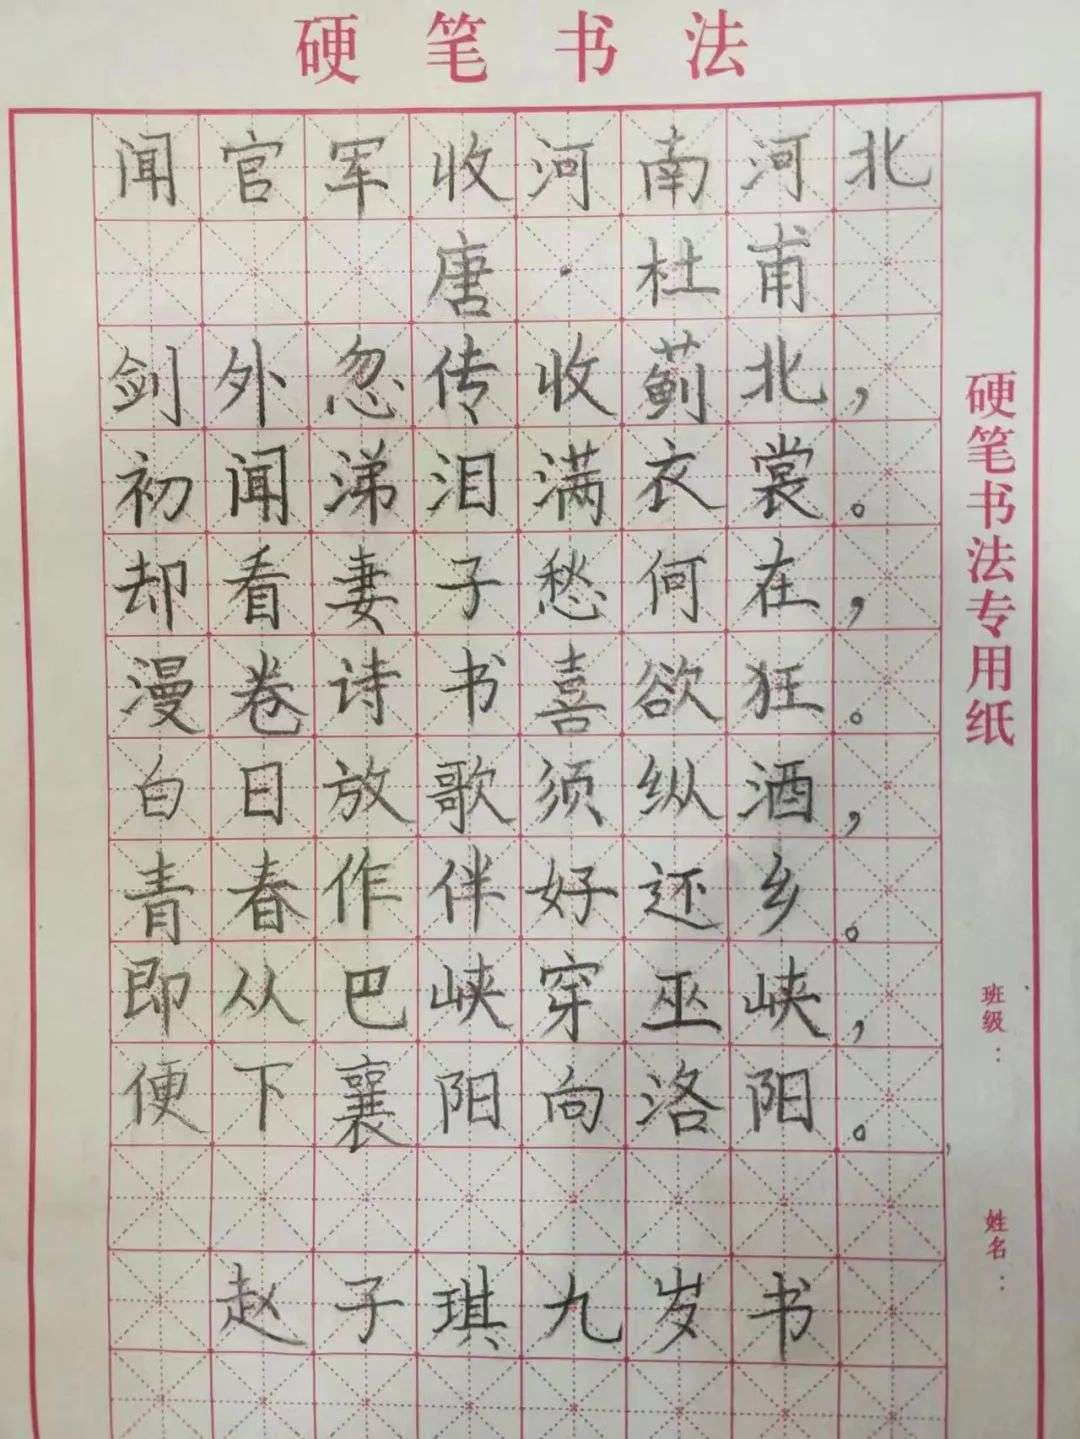 硬笔书法
闻官军收河南河北
唐·杜甫
剑外忽传收蓟北，
初闻涕泪满衣裳。
却看妻子愁何在，
漫卷诗书喜欲狂。
白日放歌须纵酒，
青春作伴好还乡。
即从巴峡穿巫峡，
便下襄阳向洛阳。
赵子琪九岁书
硬笔书法专用纸
班级：
姓名：